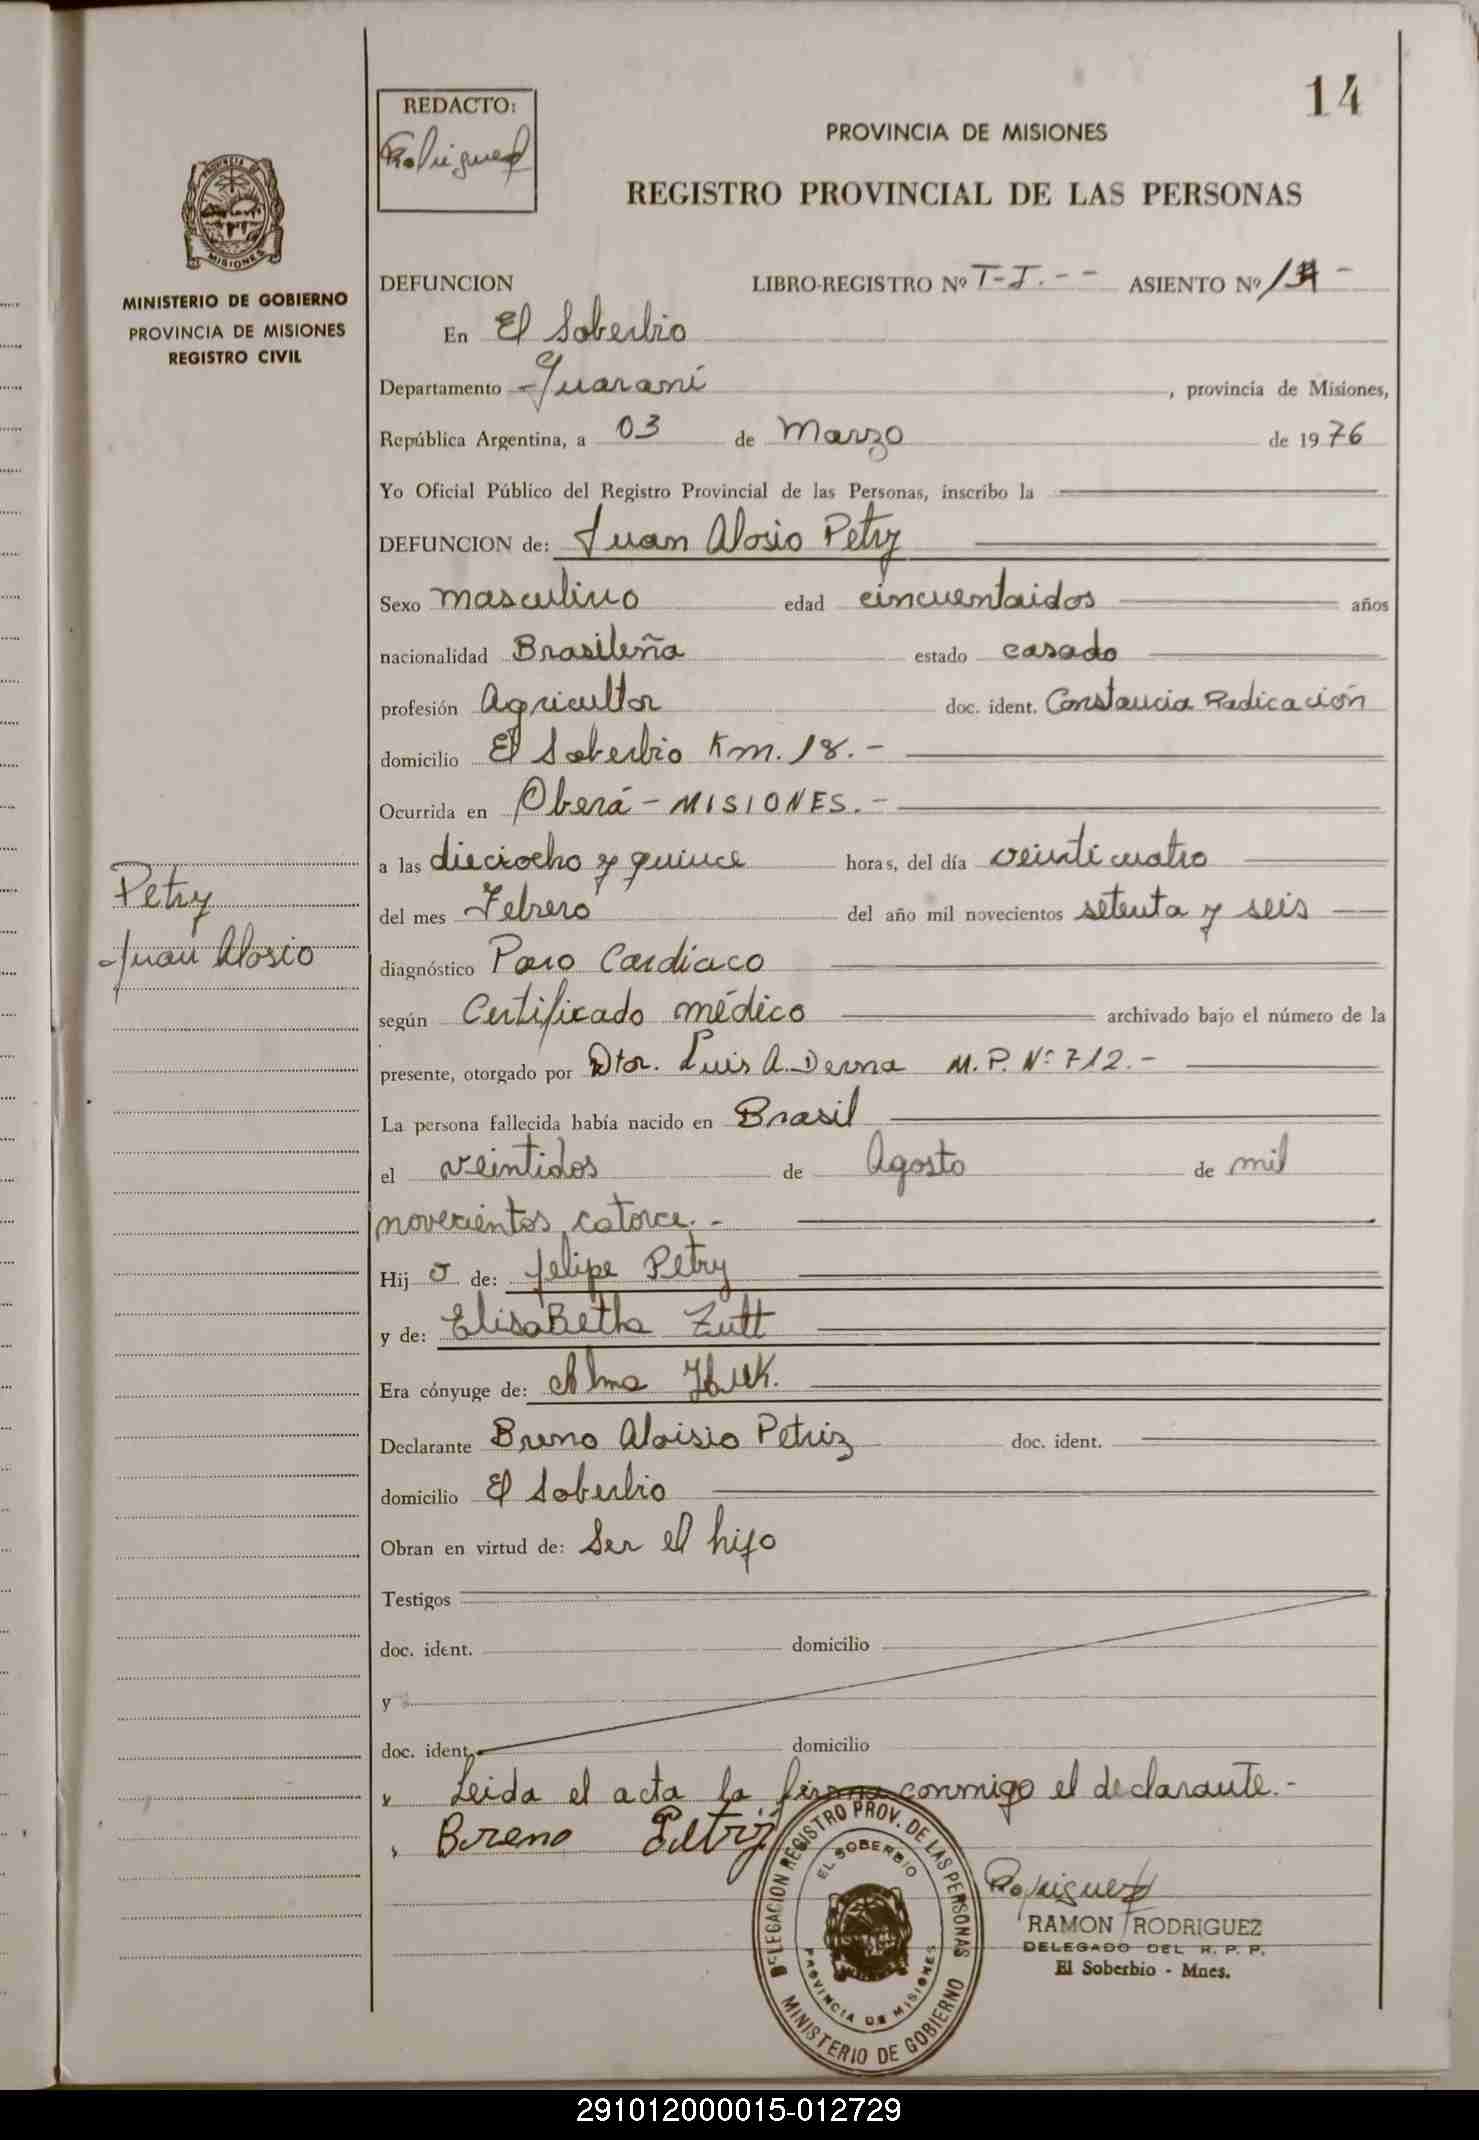 14
REDACTO:
Rodriguez
PROVINCIA DE MISIONES
REGISTRO PROVINCIAL DE LAS PERSONAS
PROVINCIA DE
MISIONES
MINISTERIO DE GOBIERNO
PROVINCIA DE MISIONES
REGISTRO CIVIL
DEFUNCION LIBRO-REGISTRO Nº T-I.-- ASIENTO Nº
En El Soberbio
Departamento Guaraní , provincia de Misiones,
República Argentina, a 03 de Marzo de 1976
Yo Oficial Público del Registro Provincial de las Personas, inscribo la
DEFUNCION de: Juan Alosio Petry
Sexo masculino edad cincuentaidos años
nacionalidad Brasileña estado casado
profesión Agricultor doc. ident. Constancia Radicación
domicilio El Soberbio Km. 18.-
Ocurrida en Oberá - MISIONES.-
a las dieciocho y quince horas, del día veinticuatro
Petry
del mes Febrero del año mil novecientos setenta y seis
Juan Alosio
diagnóstico Paro Cardiaco
según Certificado médico archivado bajo el número de la
presente, otorgado por Dtor. Luis A. Derna M.P. Nº 712.-
La persona fallecida había nacido en Brasil
el veintidos de Agosto de mil
novecientos catorce.-
Hij o de: Felipe Petry
y de: ElisaBetha Zutt
Era cónyuge de: Alma
Declarante Breno Aloisio Petriz doc. ident.
domicilio El Soberbio
Obran en virtud de: Ser el hijo
Testigos
doc. ident. domicilio
y
doc. ident. domicilio
Leida el acta la firma conmigo el declarante.-
Breno Petriz
DELEGACION REGISTRO PROV. DE LAS PERSONAS
EL SOBERBIO
PROVINCIA DE MISIONES
MINISTERIO DE GOBIERNO
Rodriguez
RAMON RODRIGUEZ
DELEGADO DEL R. P. P.
El Soberbio - Mnes.
291012000015-012729